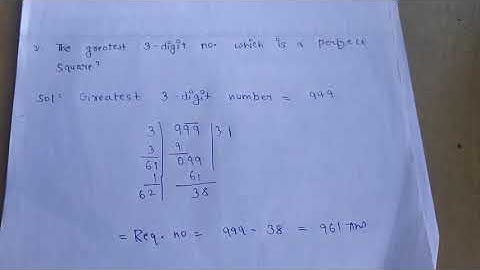 2. The greatest 3-digit no. which is a perfect
square?
Sol: Greatest 3-digit number = 999
3 | 999 | 31
3 | 9
61 | 099
1 | 61
62 | 38
= Req. no = 999 - 38 = 961 Ans